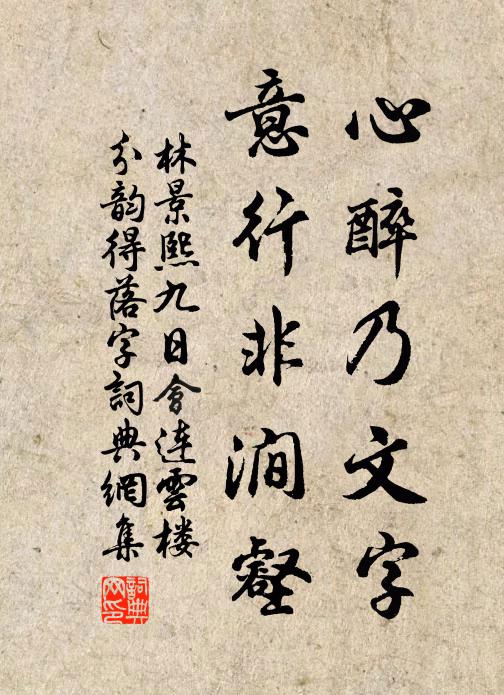 心醉乃文字
意行非涧壑
林景熙九日會连雲楼
分韵得落字詞典網集
詞典
网印